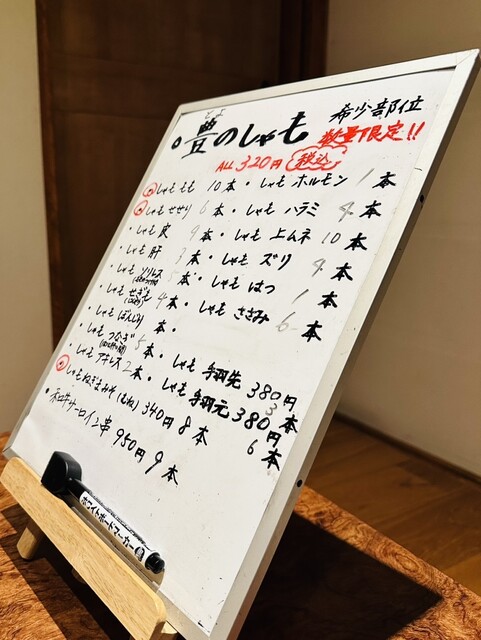 とよ
豊のしゃも 希少部位
数量限定!!
ALL 320円 税込
しゃも もも 10本・しゃも ホルモン 1本
しゃも せせり 6本・しゃも ハラミ 4本
・しゃも 皮 9本・しゃも 上ムネ 10本
・しゃも 肝 3本・しゃも ズリ 4本
・しゃも ソリレス 5本・しゃも はつ 1本
・しゃも せぎも 4本・しゃも ささみ 6本
・しゃも ぼんじり 本・
・しゃも つなぎ 5本・しゃも 手羽先 380円 3本
・しゃも アキレス 2本・しゃも 手羽元 380円 6本
しゃもねぎまみそ(むね) 340円 8本
・和牛サーロイン串 950円 9本
ホワイトボードマーカー